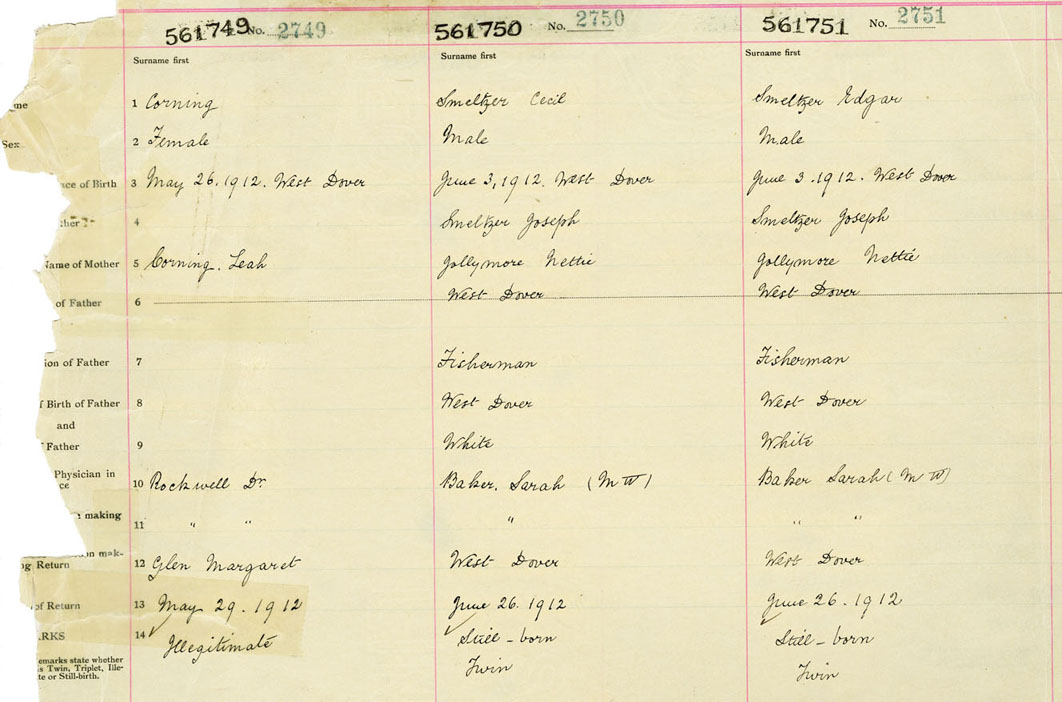 561749 No. 2749 561750 No. 2750 561751 No. 2751
Surname first Surname first Surname first
me 1 Corning Smeltzer Cecil Smeltzer Edgar
Sex 2 Female Male Male
ace of Birth 3 May 26. 1912. West Dover June 3, 1912. West Dover June 3. 1912. West Dover
ther 4 Smeltzer Joseph Smeltzer Joseph
Name of Mother 5 Corning. Leah Gollymore Nettie Gollymore Nettie
of Father 6 West Dover West Dover
ion of Father 7 Fisherman Fisherman
f Birth of Father 8 West Dover West Dover
and
Father 9 White White
Physician in
ce 10 Rockwell Dr. Baker, Sarah (M W) Baker Sarah (M W)
making
11 " " " " "
on mak-
ng Return 12 Glen Margaret West Dover West Dover
of Return 13 May 29. 1912 June 26. 1912 June 26. 1912
ARKS 14 Illegitimate Still-born Still-born
emarks state whether
is Twin, Triplet, Ille- Twin Twin
te or Still-birth.